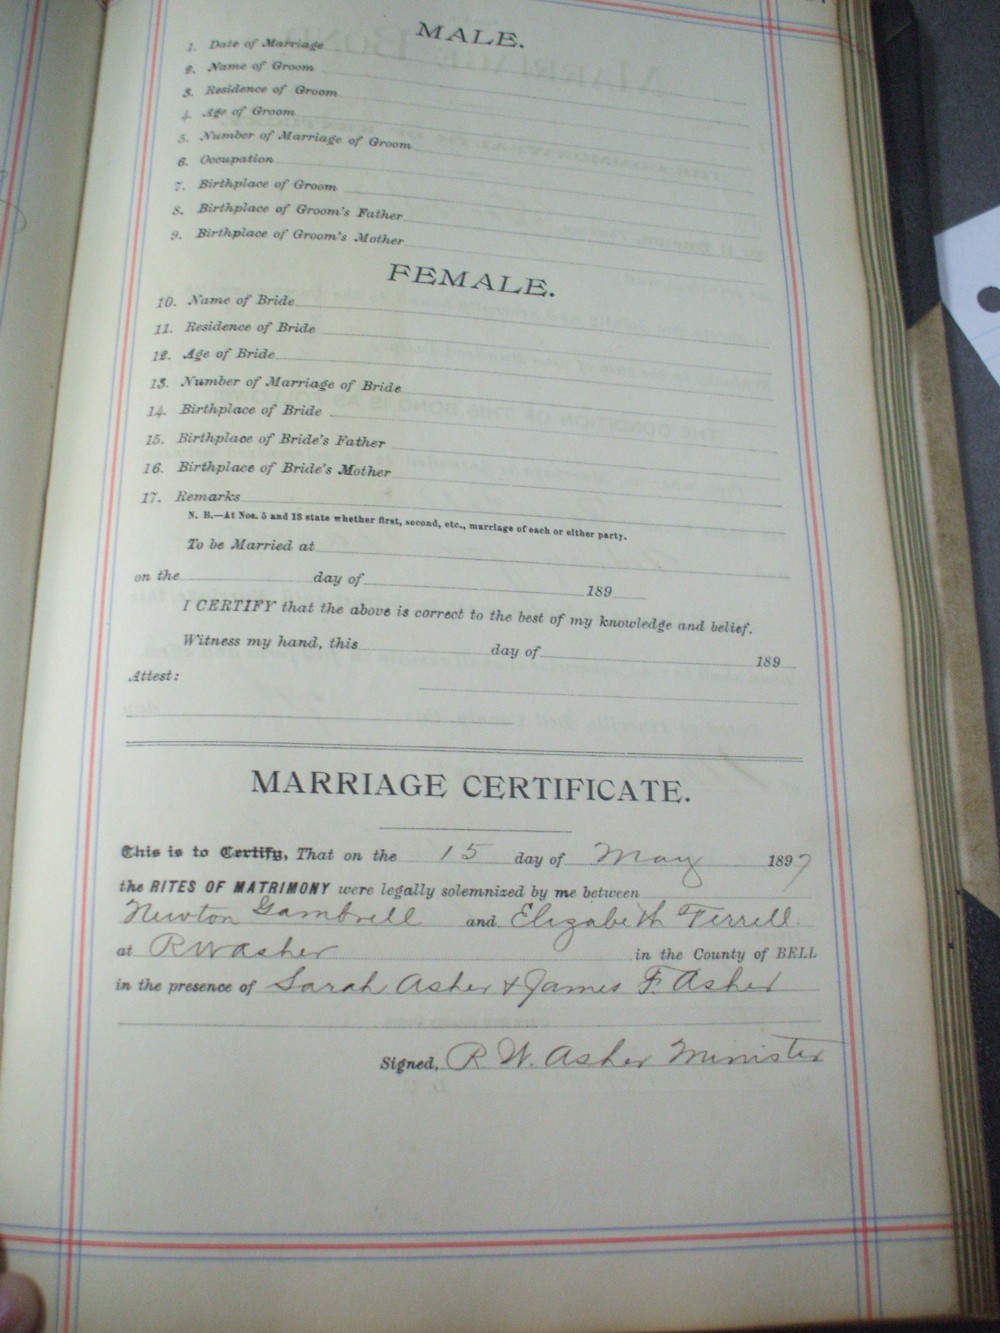 MALE.
1. Date of Marriage
2. Name of Groom
3. Residence of Groom
4. Age of Groom
5. Number of Marriage of Groom
6. Occupation
7. Birthplace of Groom
8. Birthplace of Groom's Father
9. Birthplace of Groom's Mother
FEMALE.
10. Name of Bride
11. Residence of Bride
12. Age of Bride
13. Number of Marriage of Bride
14. Birthplace of Bride
15. Birthplace of Bride's Father
16. Birthplace of Bride's Mother
17. Remarks
N. B.—At Nos. 5 and 13 state whether first, second, etc., marriage of each or either party.
To be Married at
on the day of 189
I CERTIFY that the above is correct to the best of my knowledge and belief.
Witness my hand, this day of 189
Attest:
MARRIAGE CERTIFICATE.
This is to Certify, That on the 15 day of May 1897
the RITES OF MATRIMONY were legally solemnized by me between
Newton Gambrell and Elizabeth Terrell
at R W Asher in the County of BELL
in the presence of Sarah Asher & James F. Asher
Signed, R. W. Asher Minister